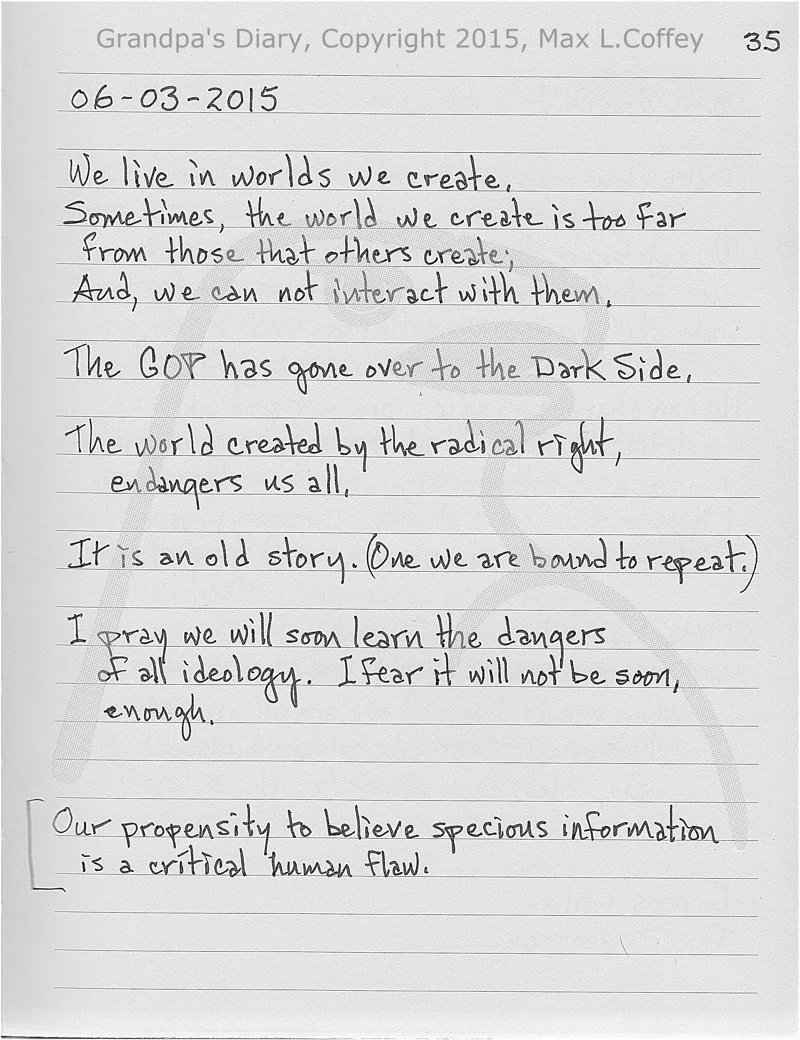 Grandpa's Diary, Copyright 2015, Max L.Coffey
35
06-03-2015
We live in worlds we create.
Sometimes, the world we create is too far
from those that others create;
And, we can not interact with them.
The GOP has gone over to the Dark Side.
The world created by the radical right,
endangers us all.
It is an old story. (One we are bound to repeat.)
I pray we will soon learn the dangers
of all ideology. I fear it will not be soon,
enough.
Our propensity to believe specious information
is a critical human flaw.